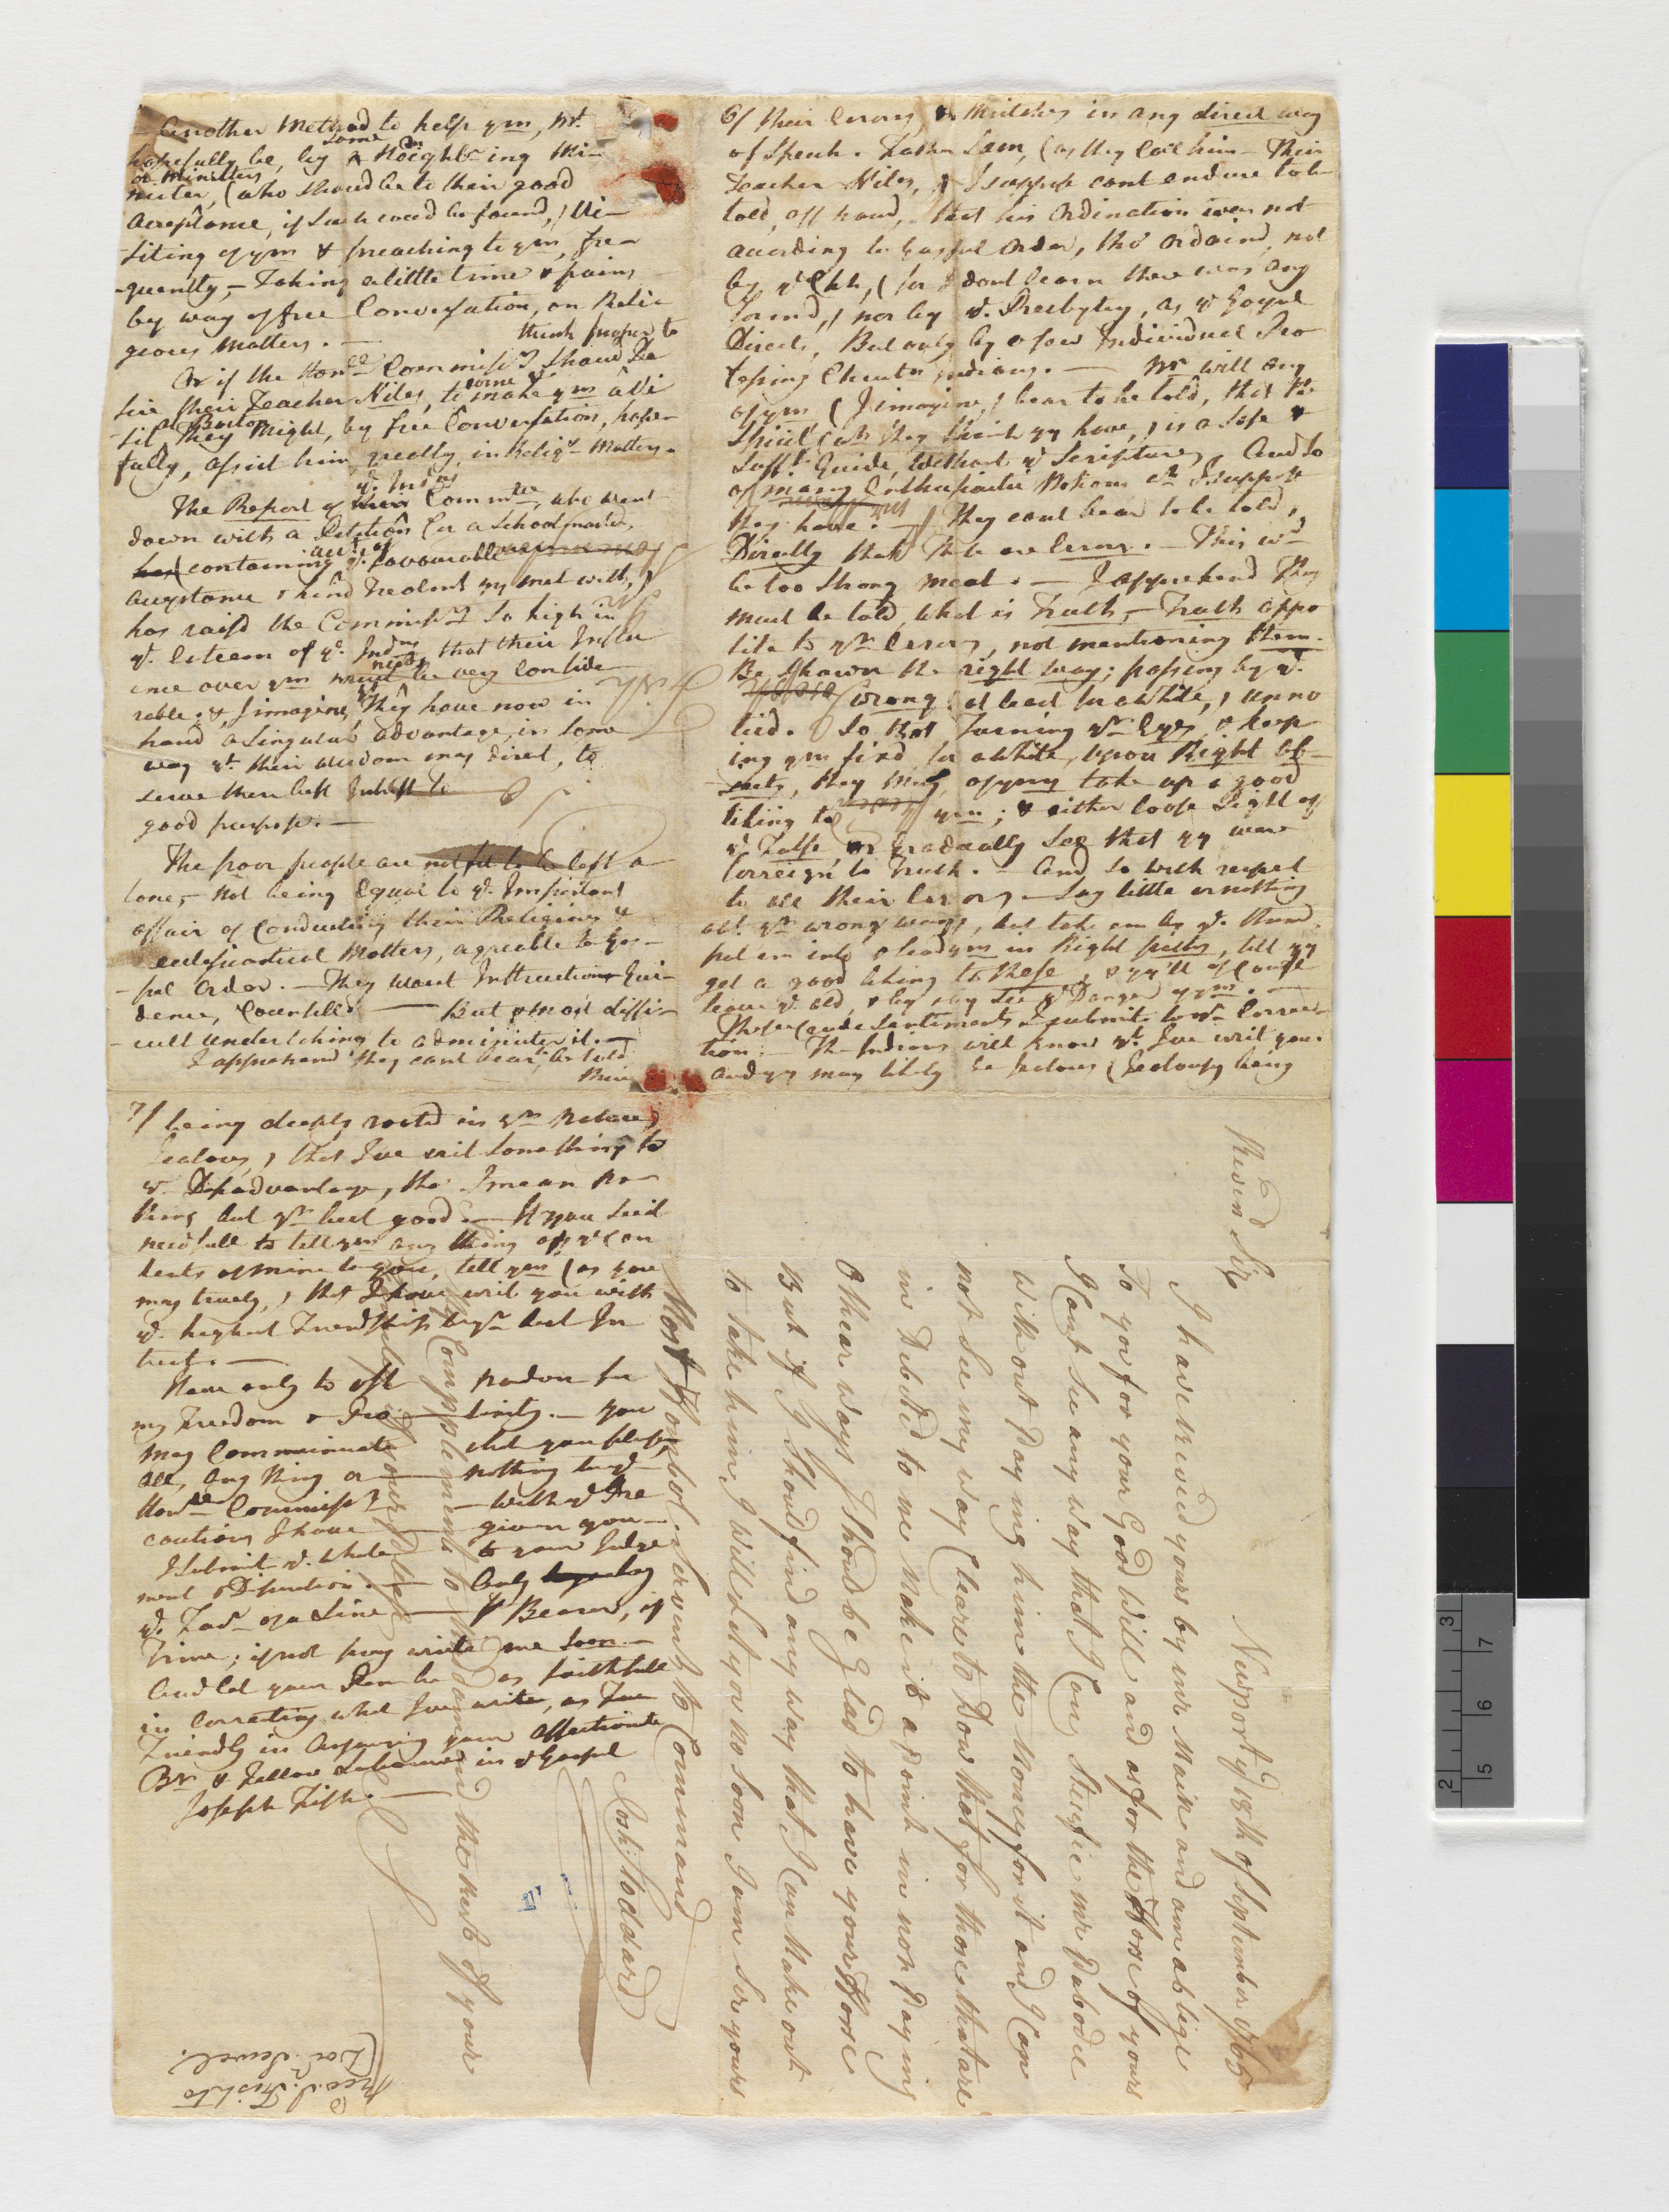 Another Method to help ym, mt.
hopefully be, by some Neighbring Mi-
nister, or Ministers (who should be to their good
Acceptance, if such coud be found,) Vi-
siting of ym & preaching to ym, fre-
-quently,- Taking a little time & pains
by way of free Conversation, on Reli-
geous Matters. —
Or if the Honble Commissrs shoud think proper to De
sire their Teacher Niles, to make ym a Vi
-sit at Boston They Might, by free Conversation, hope-
fully, assist him greatly in Religs Matters.
The Report of ye Indns Committee, who went
down with a Petition for a Schoolmaster,
(containing acct of ye favourable
acceptance & kind Treatmt yy met with,)
has raisd the Commissrs so high in
ye. Esteem of ye. Indns that their Influ
ence over ym must needs be very Conside-
rable. & I imagine, yt They have now in
hand a Singular advantage, in some
way yt. their wisdom may direct, to
serve their best Interest
good purpose. —
The poor people are not fit to be left a-
lone,- not being Equal to ye. Important
affair of Conducting their Religious &
ecclesiastical Matters, agreable to Gos-
-pel Order. — They want Instruction Gui-
dence, Counsell — But a most diffi-
-cult undertaking to administer it. —
I apprehend they cant bear, to be told
their
6/ their Errors, & Mistakes in any direct way
of Speech. Father Sam, (as they call him - Their
Teacher Niles,) I suppose cant endure to be
told, off hand, that his Ordination was not
according to Gospel Order, tho' ordaind, not
by ye Chh, (for I dont learn there was any
formd,) nor by ye. Presbytry, as ye Gospel
Directs, But only by a few Individual Pro
fessing Christn Indians. — Nr will any
of ym (I imagine,) bear to be told, that the
Spirit (wh they think yy have,) is a safe &
Sufft. Guide, without ye Scriptures, And so
of many Enthusiastic Notions wh I suppose
they have. — They cant bear to be told,
Directly that These are Errors. — This wd
be too strong meat. — I apprehend They
must be told, what is Truth, — Truth oppo
site to yr Errors, not mentioning them.
Be shown the right way; passing by ye.
Wrong (at least for a while,) unno
ticd. So that Turning yr Eyes, & keep
ing ym fixd, for a while, upon Right ob-
-jects, they may take up a good
liking to ym; & either loose Sight of
ye False, or Gradually See that yy were
forreign to Truth. — And so with respect
to all their Errors — Say little or nothing
abt. yr wrong ways, but take em by ye. Hand,
put em into & lead ym in Right paths, till yy
get a good liking to these, & yy'll of Course
leave ye old, & by & by see ye Danger of ym. —
These Crude Sentiments I submit to yr Correc-
tion. — The Indians will know yt. Ive writ you.
and yy may likely be Jealous (Jealousy being
7/ being deeply rooted in yr Nature)
Jealous, that Ive writ something to
yr. Disadvantage, tho' I mean no-
thing but yr best good. — If you find
needfull to tell ym any thing of ye Con
tents of mine to you, tell ym (as you
may truely,) that I have writ you with
ye. highest Friendship to yr best In
trest. —
Have only to ask pardon for
my Freedom & Prolixity. — You
may Communicate what you please,
all, any thing or nothing to ye
Honble Commissrs — with ye Pre
cautions I have given you —
I Submit ye. whole to your Judge
ment & Discretion. — Only
ye. Favr of a Line — pr Bearer, if
Time; if not pray write me soon. —
And let your Pen be as faithfull
in Correcting what Ive write, as Ive
Friendly in Assuring your Affectionate
Br. & Fellow Labourer in ye Gospel
Joseph Fish. —
Newport ye 18th of September 1765
Reverend Sir
I have Received yours by mr Main and am oblige
To you for your Good Will and as for the Horse of yours
I Cant See any way that I Can Sattesfie mr Pabodie
with out Paying him the Money for it and I Can
not See my way Cleare to Dow that for those that are
in Debted to me Make it a Point in not Paying
Othear ways I Should be Glad to have your Horse
But if I Should find any way that I Can Make out
to take him I will Let you no Soon I am Sir yours
Most Humbol. Servant to Command
Complements to Madam and the Rest of your
Family
Revd. J. Fish to
Docr. Sewel.